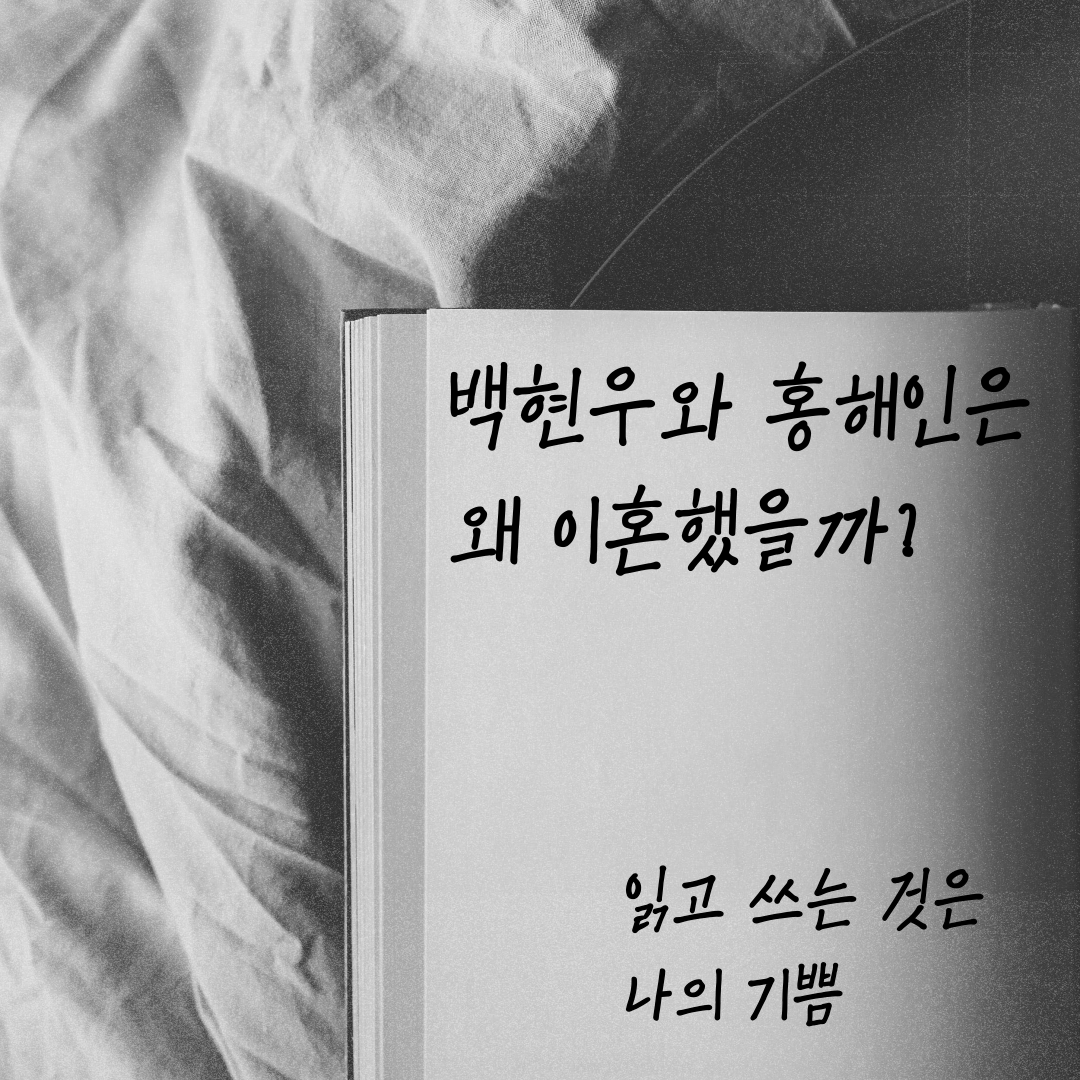 백현우와 홍해인은
왜 이혼했을까?
읽고 쓰는 것은
나의 기쁨